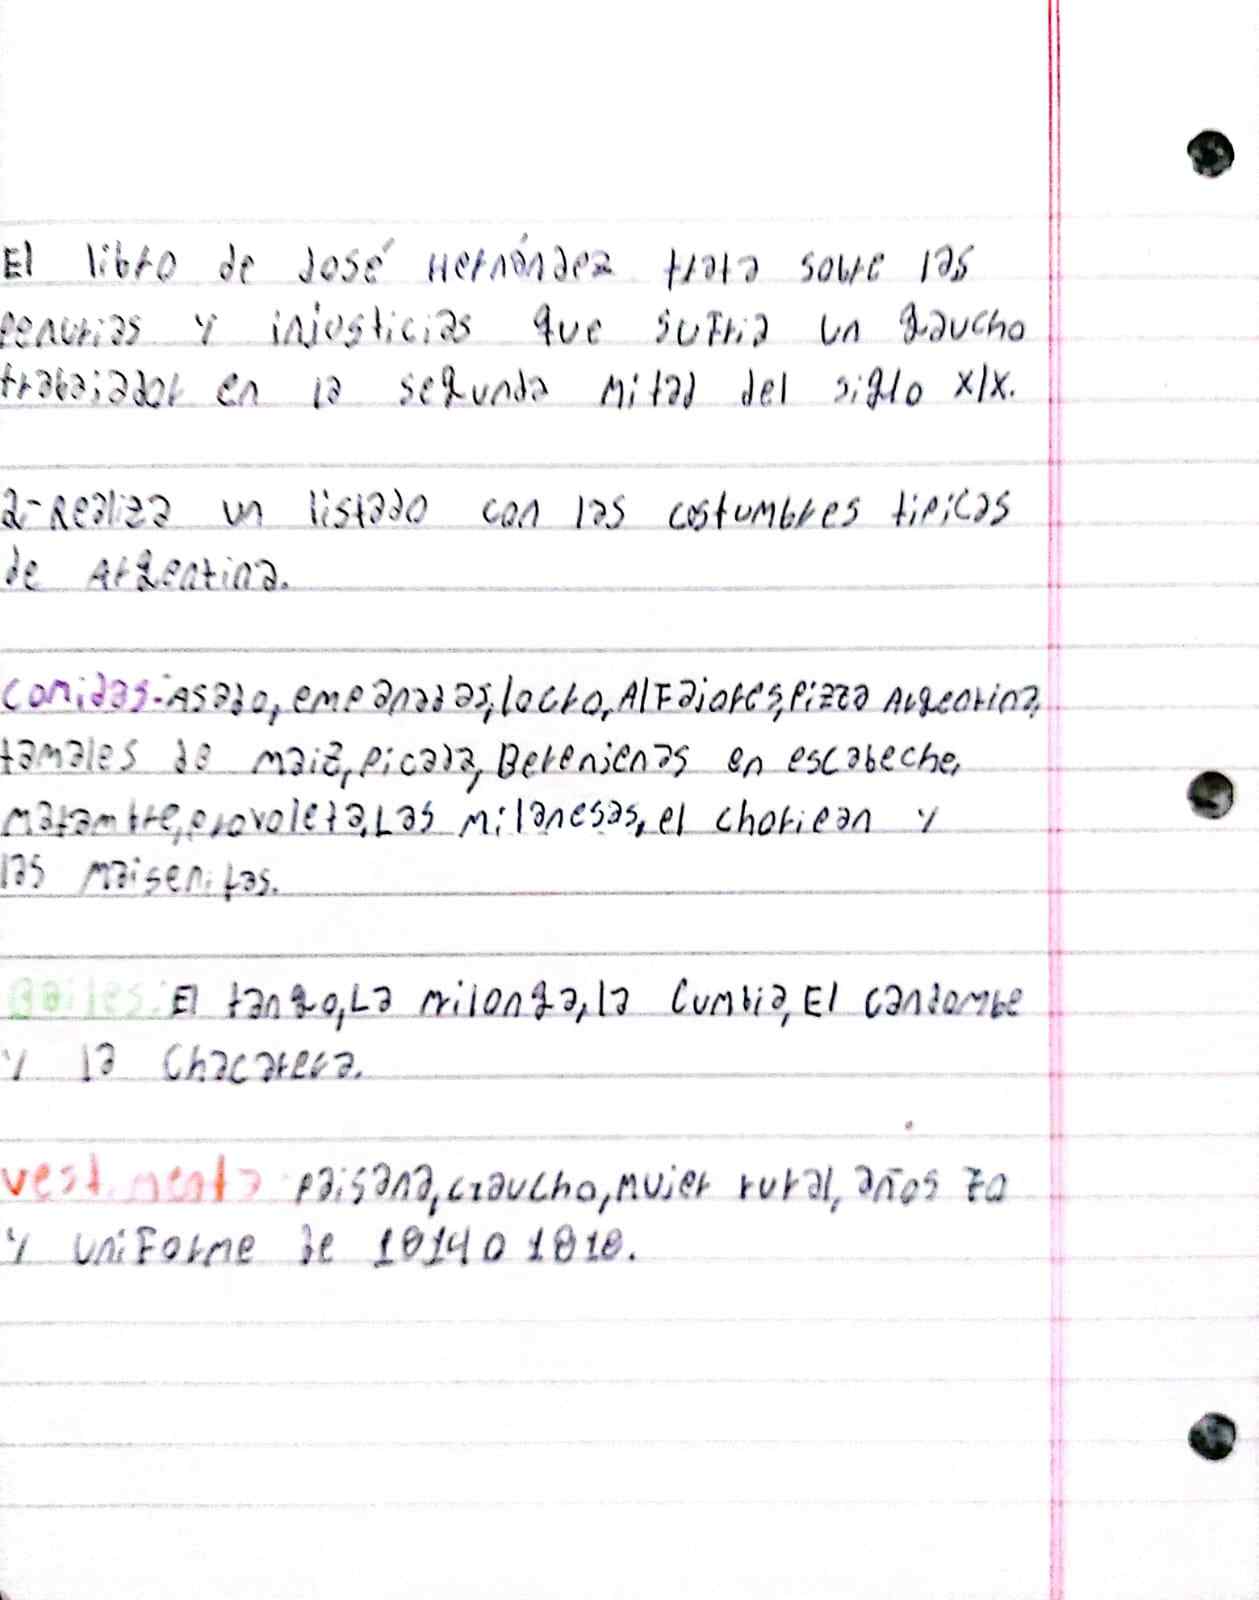 El libro de José Hernández trata sobre las
penurias y injusticias que sufria un gaucho
trabajador en la segunda mitad del siglo XIX.
2-Realiza un listado con las costumbres tipicas
de Argentina.
comidas:Asado, empanadas, locro, Alfajores, Pizza Argentina,
tamales de maiz, picada, Berenjenas en escabeche,
matambre, provoleta, Las milanesas, el choripan y
las maisenitas.
Bailes: El tango, La milonga, la Cumbia, El candombe
y la Chacarera.
vestimenta paisana, Gaucho, mujer rural, años 70
y uniforme de 1814 o 1818.